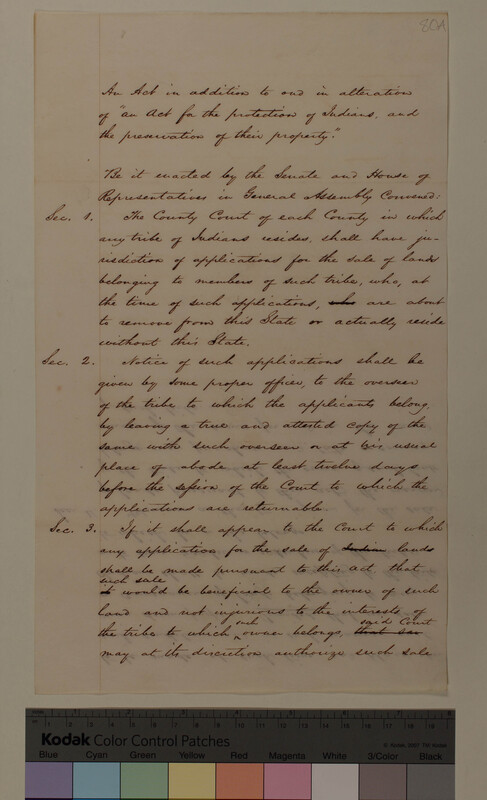 80A
An Act in addition to and in alteration
of "an Act for the protection of Indians, and
the preservation of their property."
Be it enacted by the Senate and House of
Representatives in General Assembly Convened:
Sec. 1. The County Court of each County in which
any tribe of Indians resides, shall have ju-
risdiction of applications for the sale of lands
belonging to members of such tribe, who, at
the time of such applications, who are about
to remove from this State or actually reside
without this State.
Sec. 2. Notice of such applications shall be
given by some proper officer, to the overseer
of the tribe to which the applicants belong,
by leaving a true and attested copy of the
same with such overseer or at his usual
place of abode at least twelve days
before the session of the Court to which the
applications are returnable.
Sec. 3. If it shall appear to the Court to which
any application for the sale of Indian lands
shall be made pursuant to this act, that
such sale
it would be beneficial to the owner of such
land and not injurious to the interests of
such said Court
the tribe to which owner belongs, that
may at its discretion authorize such sale
Kodak Color Control Patches
© Kodak, 2007 TM: Kodak
Blue Cyan Green Yellow Red Magenta White 3/Color Black